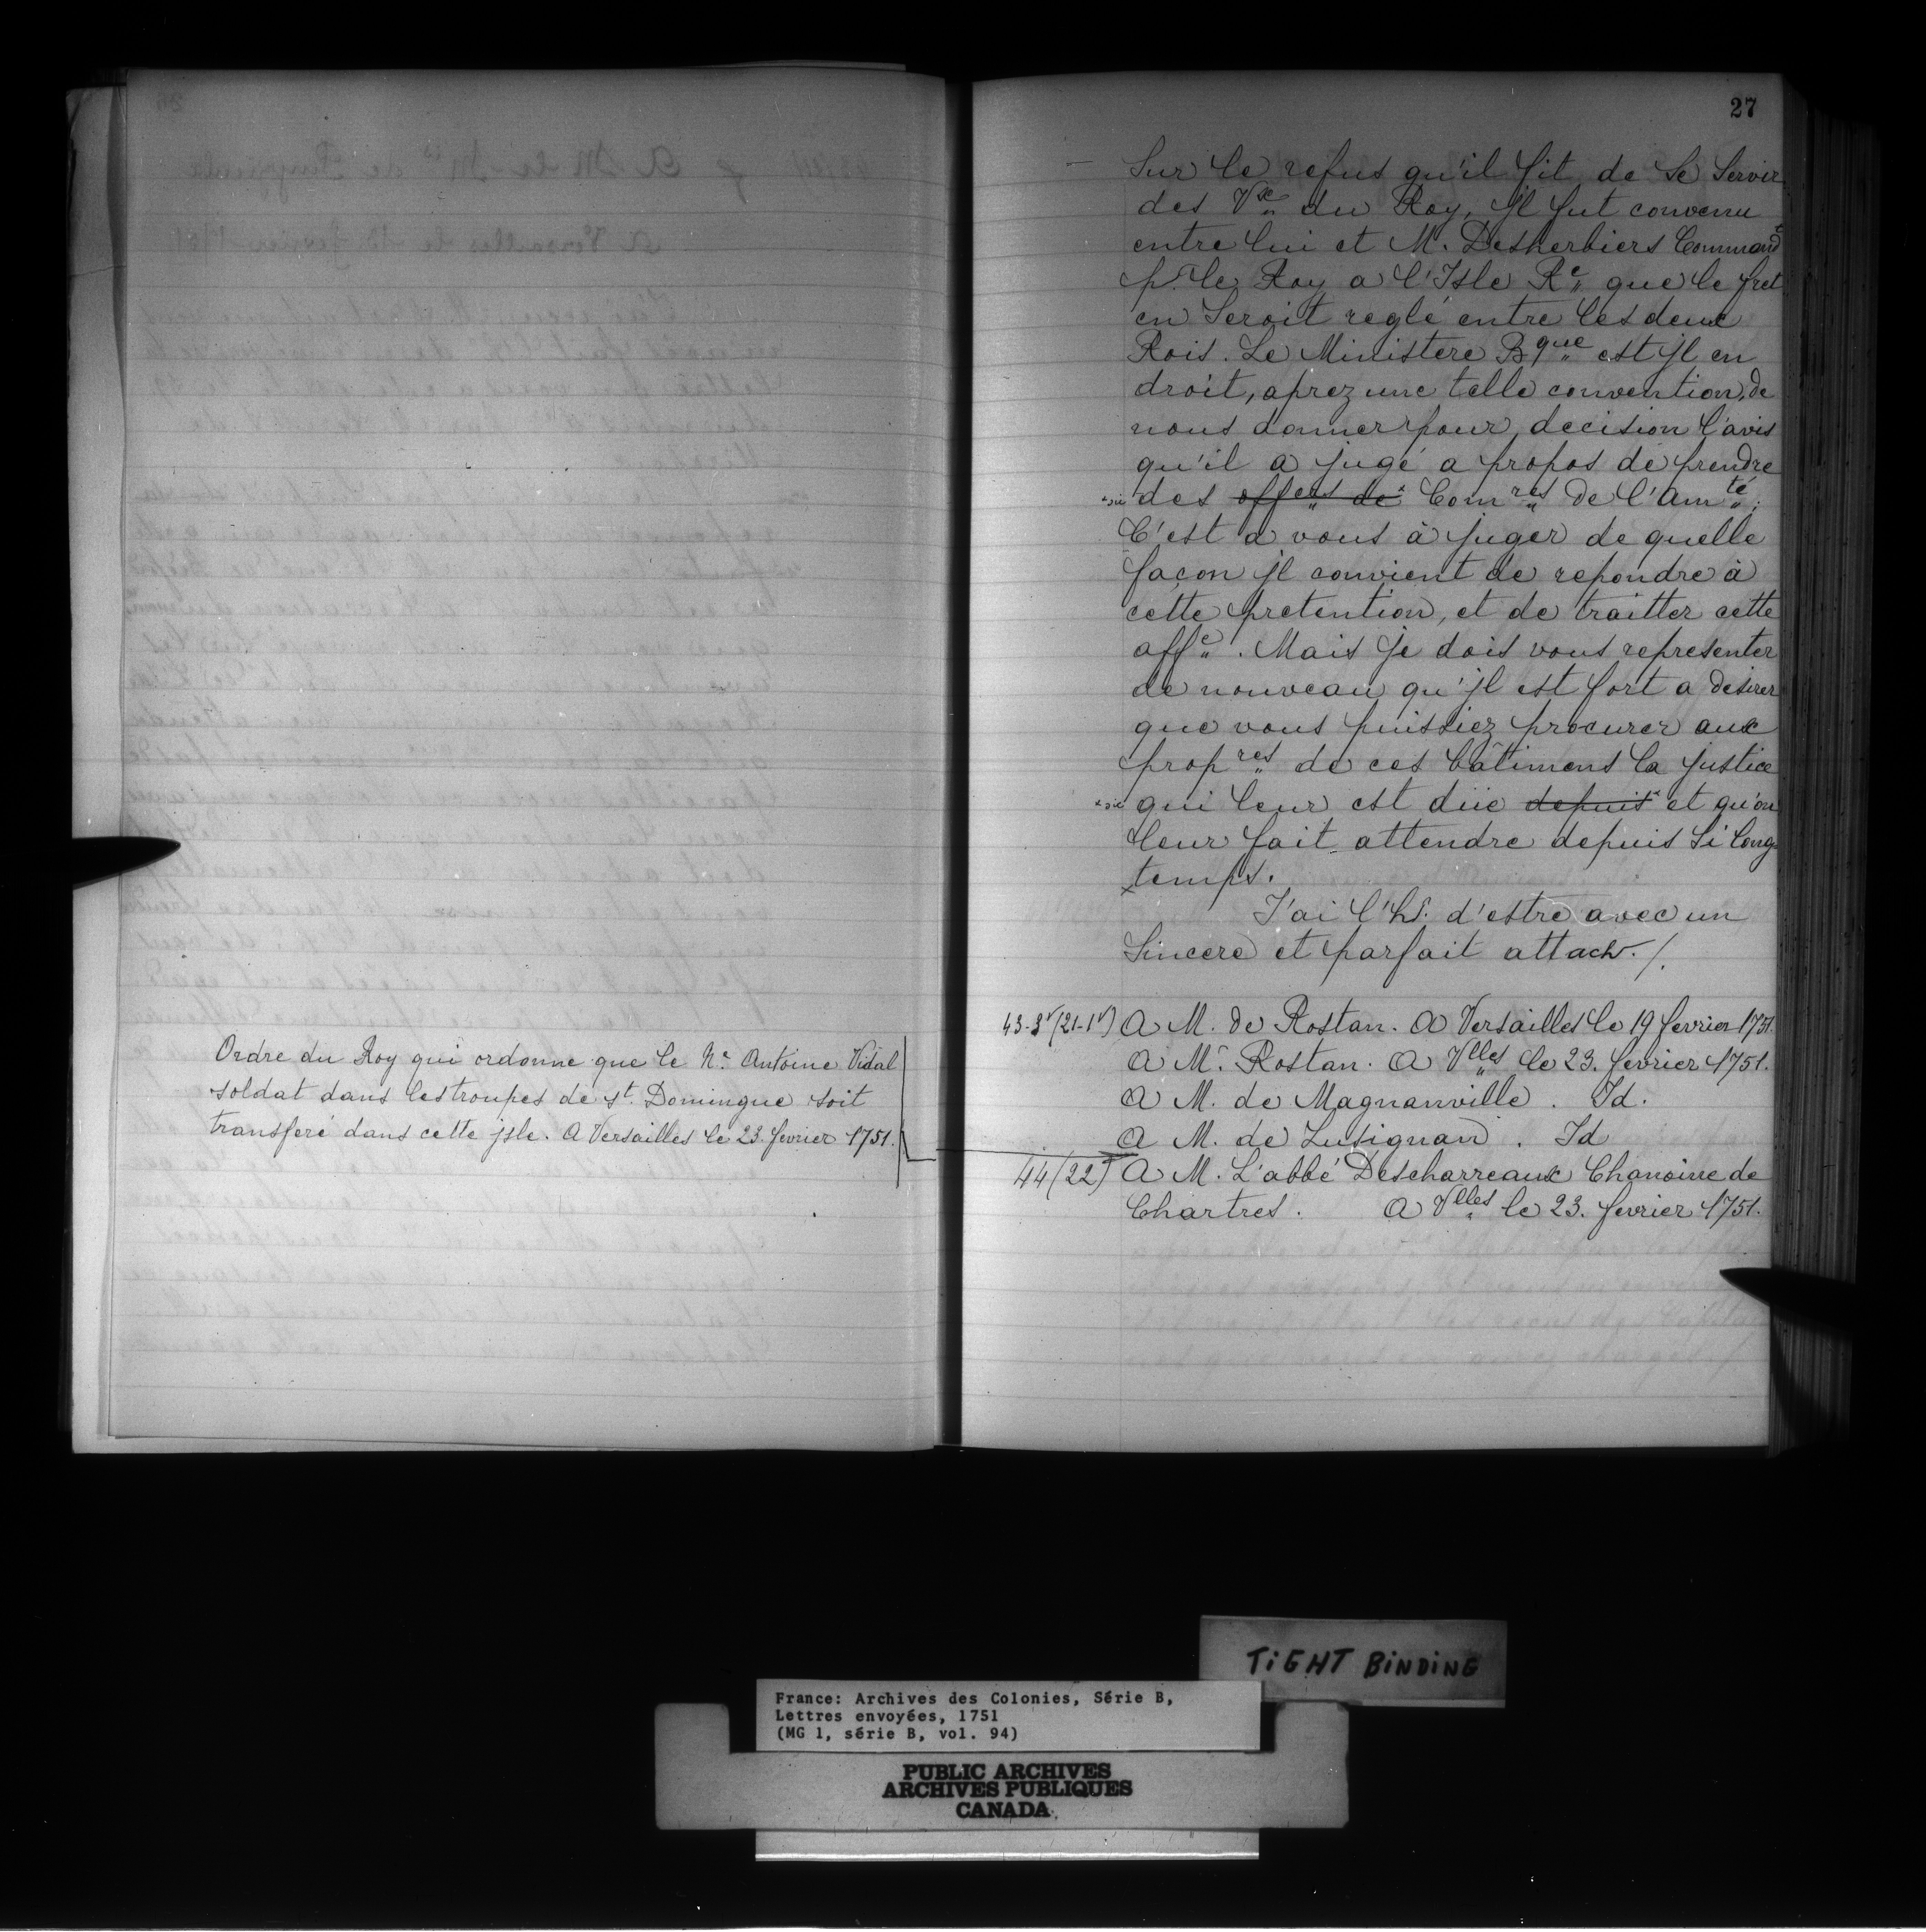 27
Sur le refus qu'il fit de se servir
des Vx du Roy, Jl fut convenu
entre lui et M. Desherbiers Command.t
p.r le Roy a l'Isle R.e que le fret
en seroit reglé entre les deux
Rois. Le Ministere B.que est Jl en
droit, aprez une telle convention, de
nous donner pour decision l'avis
qu'il a jugé a propos de prendre
*sic des offers de* Com.res de l'Am.té.
C'est a vous à juger de quelle
façon Jl convient de repondre à
cette pretention, et de traitter cette
aff.e. Mais Je dois vous representer
de nouveau qu'Jl est fort a desirer
que vous puissiez procurer aux
prop.res de ces bâtimens la justice
*sic qui leur est düe depuis* et qu'on
leur fait attendre depuis si long
temps.
J'ai l'h.r d'estre avec un
sincere et parfait attach. /.
43-3v (21-1v) A M. de Rostan. A Versailles le 19 fevrier 1751.
A M.r Rostan. A V.lles le 23. fevrier 1751.
A M. de Magnanville. Id.
A M. de Lusignan. Id
Ordre du Roy qui ordonne que le N.é Antoine Vidal
soldat dans les troupes de st. Domingue soit
transferé dans cette jsle. A Versailles le 23. fevrier 1751.
44 (22) A M. L'abbé Descharreaux Chanoine de
Chartres. A V.lles le 23. fevrier 1751.
TiGHT BiNDiNG
France: Archives des Colonies, Série B,
Lettres envoyées, 1751
(MG 1, série B, vol. 94)
PUBLIC ARCHIVES
ARCHIVES PUBLIQUES
CANADA